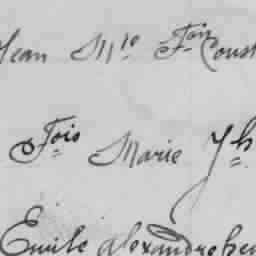 Jean Mie Fçois Const
Fçois Marie Jh
Emile Alexandre hen